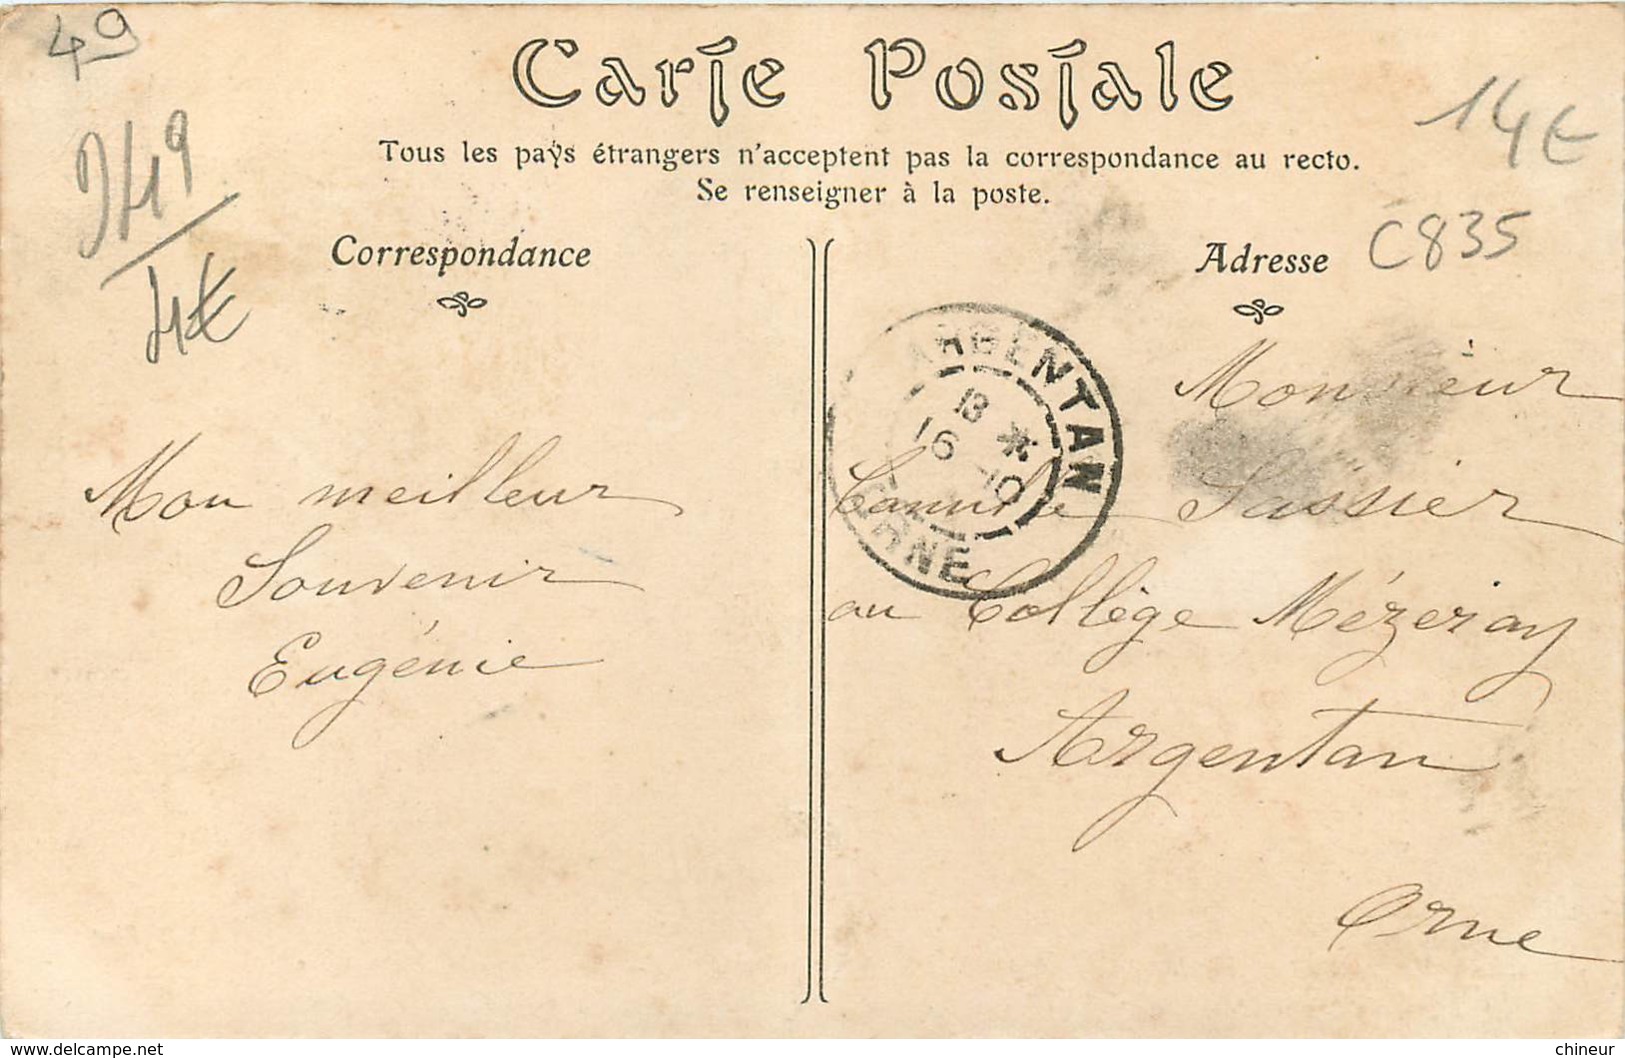 49
Carte Postale
14€
Tous les pays étrangers n'acceptent pas la correspondance au recto.
Se renseigner à la poste.
4€
Correspondance
Adresse
C835
ARGENTAN
16
10
ORNE
Mon meilleur
Souvenir
Eugénie
Monsieur
Camille Sassier
au Collège Mézeray
Argentan
Orne
www.delcampe.net
chineur